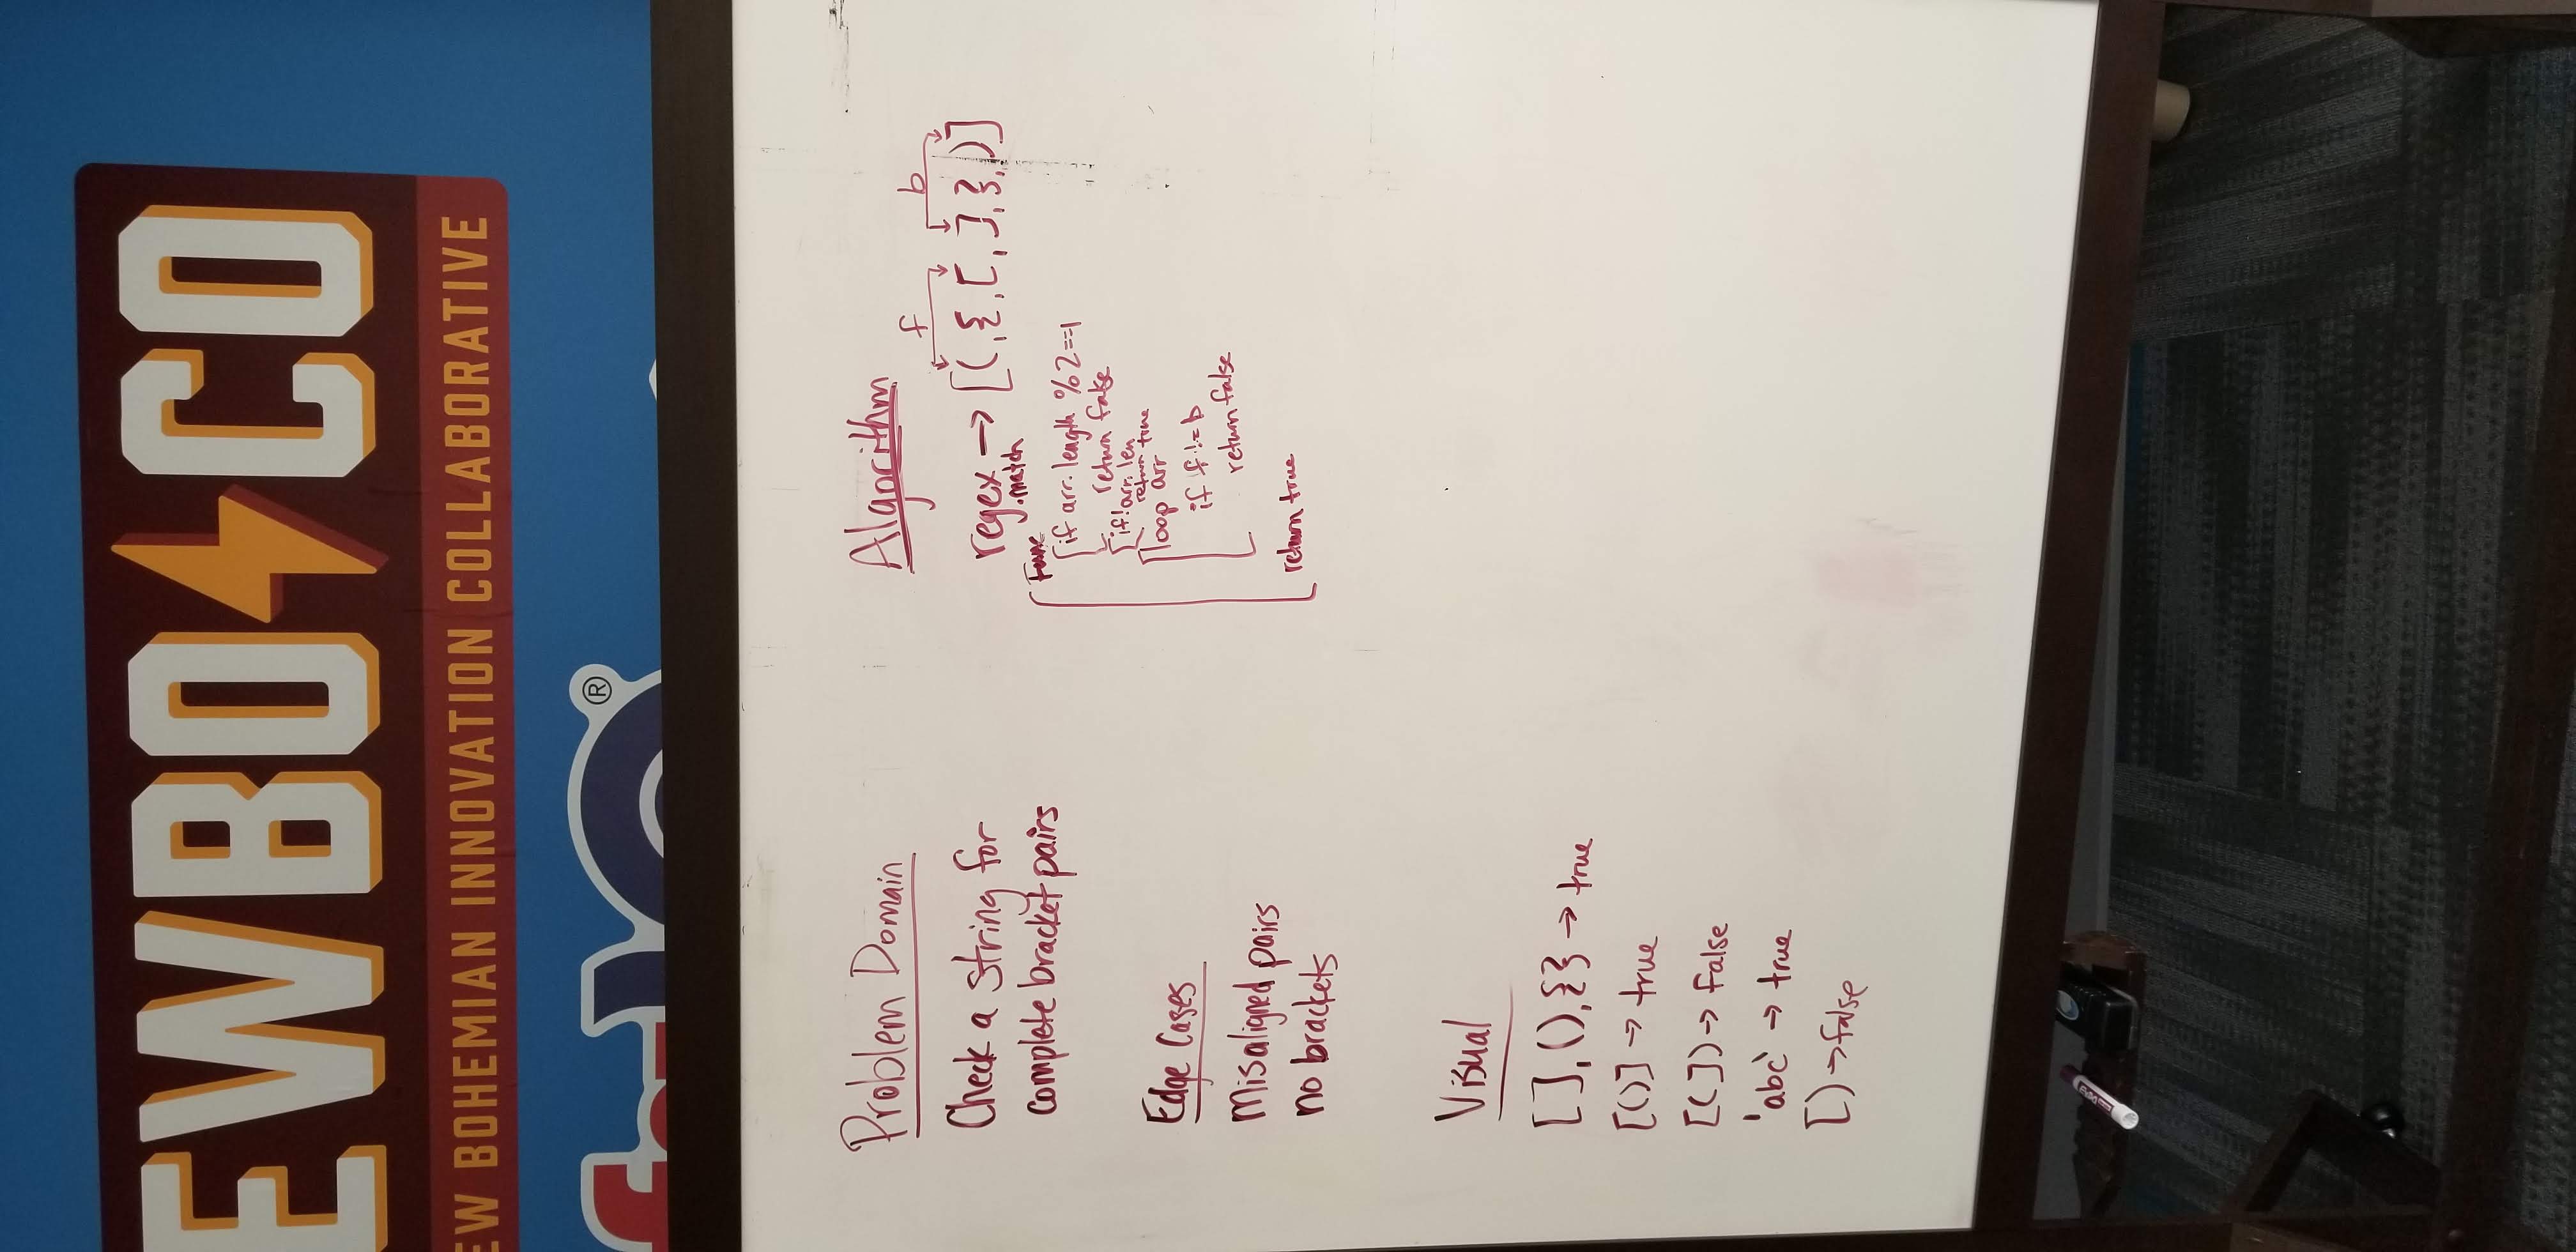 EWBO CO
EW BOHEMIAN INNOVATION COLLABORATIVE
®
Problem Domain
Check a string for
complete bracket pairs
Edge Cases
Misaligned pairs
no brackets
Visual
[ ], ( ), { } → true
[( )] → true
[( ]) → false
'abc' → true
[ ) → false
Algorithm
f b
regex → [(, {, [, ], }, )]
.match
Func
if arr.length % 2 == 1
return false
if !arr.len
return true
loop arr
if f != b
return false
return true